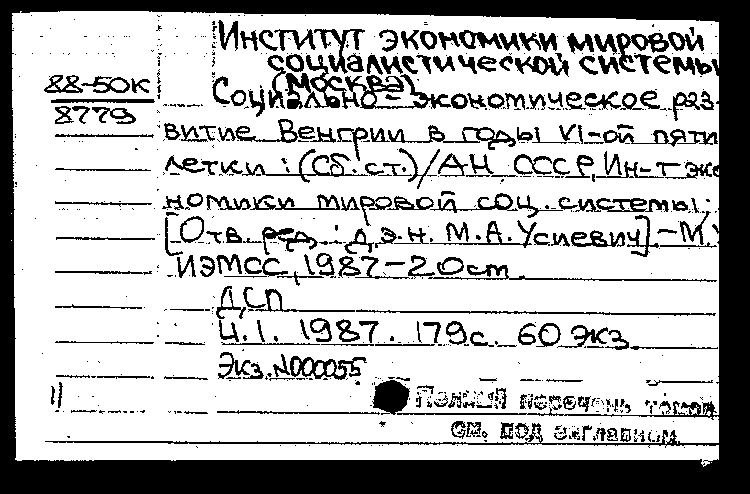 Институт экономики мировой
социалистической системы
(Москва)
88-50К
8779
Социально-экономическое раз-
витие Венгрии в годы VI-ой пяти
летки : (Сб. ст.) / АН СССР, Ин-т эко
номики мировой соц. системы;
[Отв. ред. : д.э.н. М.А. Усиевич]. - М.:
ИЭМСС, 1987 - 20 см.
ДСП
Ч.1. 1987. 179с. 60 экз.
Экз. N000055
Полный перечень томов
см. под заглавием